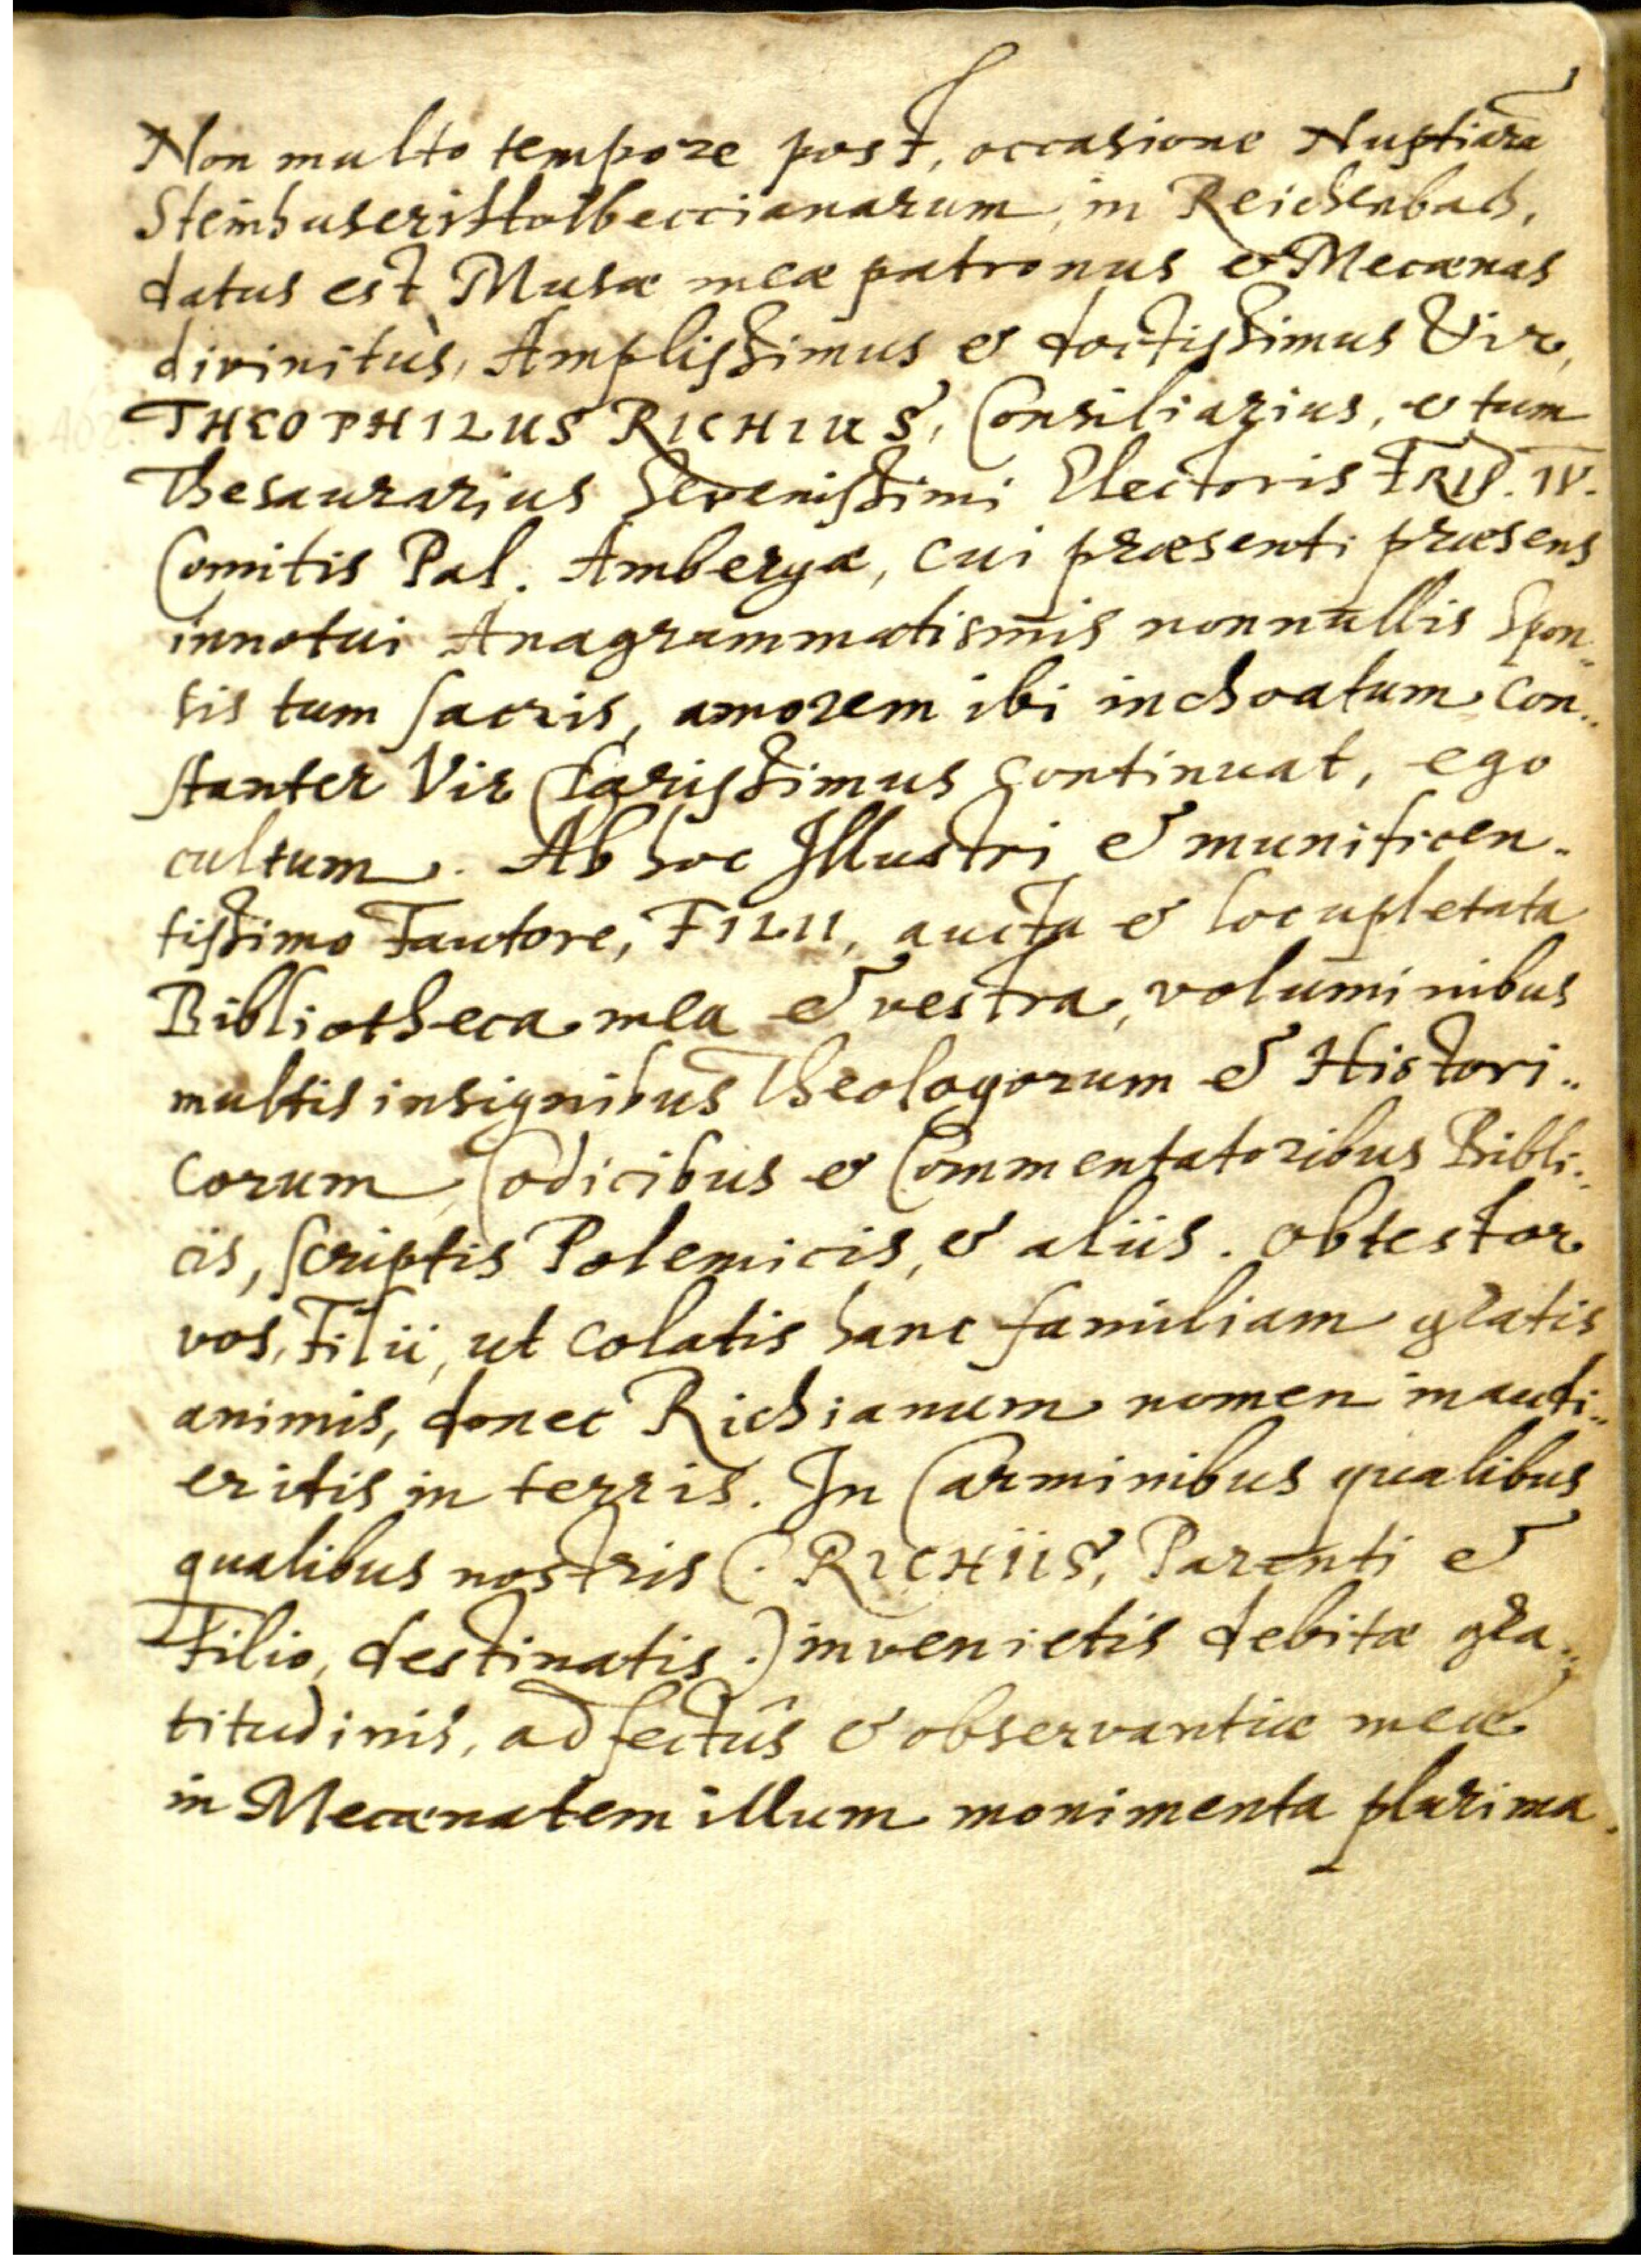 Non multo tempore post, occasione Nuptiarū
Steinhuseristtolbeccianarum, in Reichenbach,
datus est Musæ meæ patronus & Mecænas
divinitùs, Amplissimus & doctissimus Vir,
THEOPHILUS RICHIUS, Consiliarius, & tum
Thesaurarius Serenissimi Electoris FRID. IV.
Comitis Pal. Ambergæ, cui præsenti præsens
innotui Anagrammatismis nonnullis Spon-
sis tum sacris, amorem ibi inchoatum con-
stanter Vir Clarissimus continuat, ego
cultum. Ab hoc Illustri & munificen-
tissimo Fautore, FILII, aucta & locupletata
Bibliotheca mea & vestra, voluminibus
multis insignibus Theologorum & Histori-
corum, Codicibus & Commentatoribus Bibli-
cis, scriptis Polemicis, & aliis. Obtestor
vos, Filii, ut colatis hanc familiam gratis
animis, donec Richianum nomen inaudi-
eritis in terris. In Carminibus qualibus
qualibus nostris (: RICHIIS, Parenti &
Filio, destinatis :) invenietis debitæ gra-
titudinis, adfectûs & observantiæ meæ
in Mecænatem illum monimenta plurima.